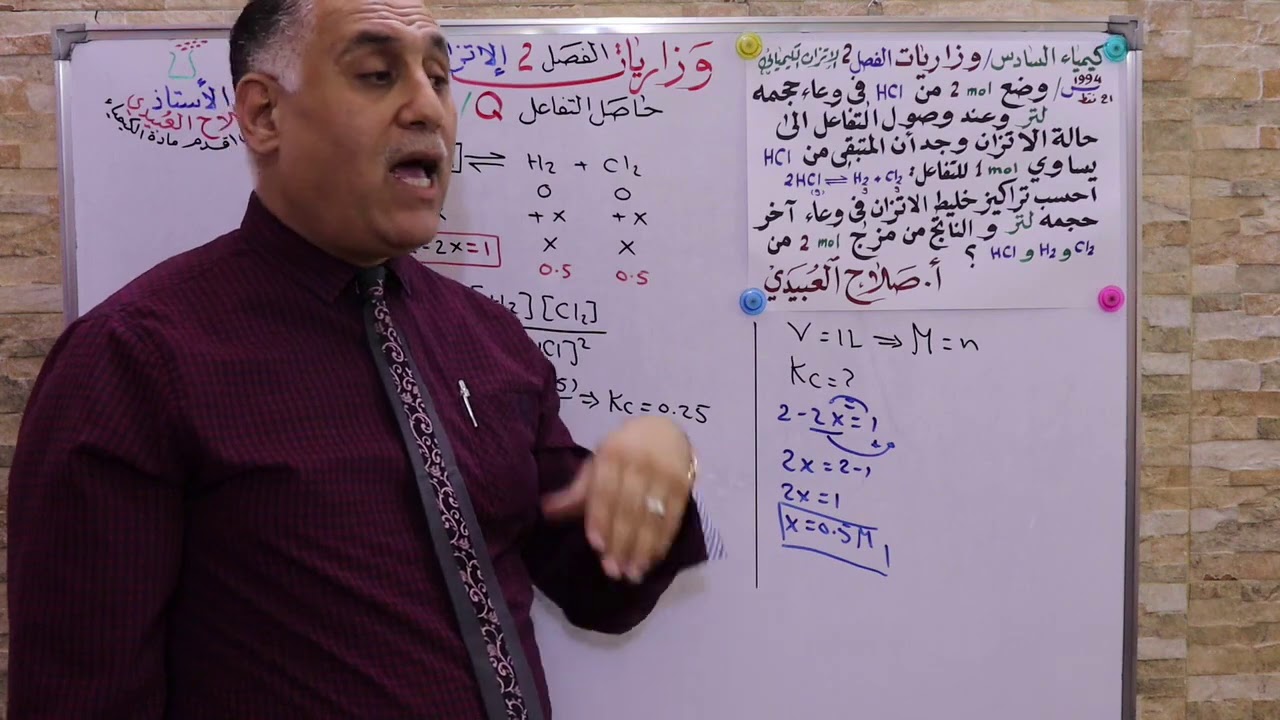 كيمياء السادس/ وزاريات الفصل 2 الاتزان الكيميائي
1994
س/ وضع 2 mol من HCl في وعاء حجمه
لتر وعند وصول التفاعل الى
حالة الاتزان وجد أن المتبقي من HCl
يساوي 1 mol للتفاعل: 2HCl ⇌ H₂ + Cl₂
احسب تراكيز خليط الاتزان في وعاء آخر
حجمه لتر و الناتج من مزج 2 mol من
HCl و H₂ و Cl₂ ؟
أ. صلاح العبيدي
وزاريات الفصل 2 الاتز
حاصل التفاعل Q /
الأستاذ
لاح العبيدي
اقدم مادة الكيمياء
⇌ H₂ + Cl₂
0 0
+x +x
-2x=1 x x
0.5 0.5
₂] [Cl₂]
Cl]²
5) ⇒ Kc=0.25
V=1L ⇒ M=n
Kc=?
2-2x=1
2x=2-1
2x=1
x=0.5M